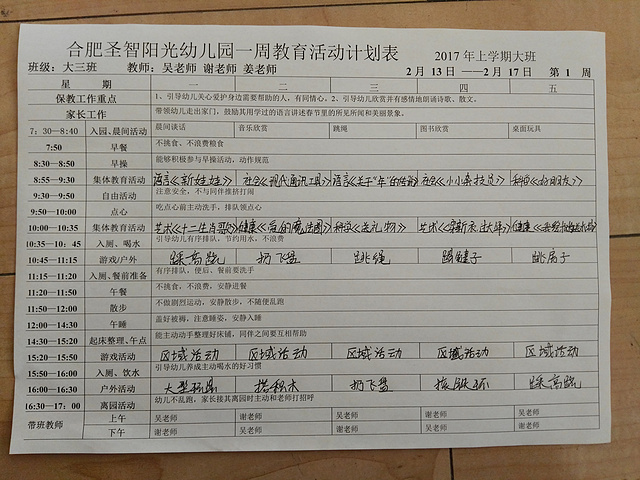 合肥圣智阳光幼儿园一周教育活动计划表
2017 年上学期大班
班级：大三班 教师：吴老师 谢老师 姜老师 2 月 13 日 —2 月 17 日 第 1 周
星 期 一 二 三 四 五
保教工作重点 1、引导幼儿关心爱护身边需要帮助的人，有同情心，2、引导幼儿欣赏并有感情地朗诵诗歌、散文。
家长工作 带领幼儿走出家门，鼓励其用学过的语言讲述春节里的所见所闻和美丽景象。
7：30—8:40 入园、晨间活动 晨间谈话 音乐欣赏 跳绳 图书欣赏 桌面玩具
7:50 早餐 不挑食、不浪费粮食
8:30—8:50 早操 能够积极参与早操活动，动作规范
8:55—9:30 集体教育活动 语言《新娃娃》 社会《现代通讯工具》 语言《关于“年”的传说》 社会《小小
9:30—9:50 自由活动 注意安全，不与同伴推挤打闹
9:50—10:00 点心 吃点心前主动洗手，排队领点心
10:00—10:35 集体教育活动 艺术《十二生肖歌》 健康 科学《送礼物》 艺术 健康
10:35—10：45 入厕、喝水 引导幼儿有序排队，节约用水，不浪费
10:45—11:15 游戏/户外 踩高跷 扔飞盘 跳绳 踢毽子 跳房子
11:15—11:20 入厕、餐前准备 有序排队，便后、餐前要洗手
11:20—11:50 午餐 不挑食，不浪费，安静进餐
11:50—12:00 散步 不做剧烈运动，安静散步，不随便乱跑
12:00—14:30 午睡 盖好被褥，注意睡姿，安静入睡
14:30—15:20 起床整理、午点 能主动动手整理好床铺，同伴之间要互相帮助
15:20—15:50 游戏活动 区域活动 区域活动 区域活动 区域活动 区域活动
15:50—16:00 入厕、饮水 引导幼儿养成主动喝水的好习惯
16:00—16:30 户外活动 大型玩具 搭积木 扔飞盘 滚铁环 踩高跷
16:30—17：00 离园活动 幼儿不乱跑，家长接其离园时主动和老师打招呼
带班教师 上午 吴老师 谢老师 吴老师 谢老师 吴老师
下午 谢老师 吴老师 谢老师 吴老师 谢老师